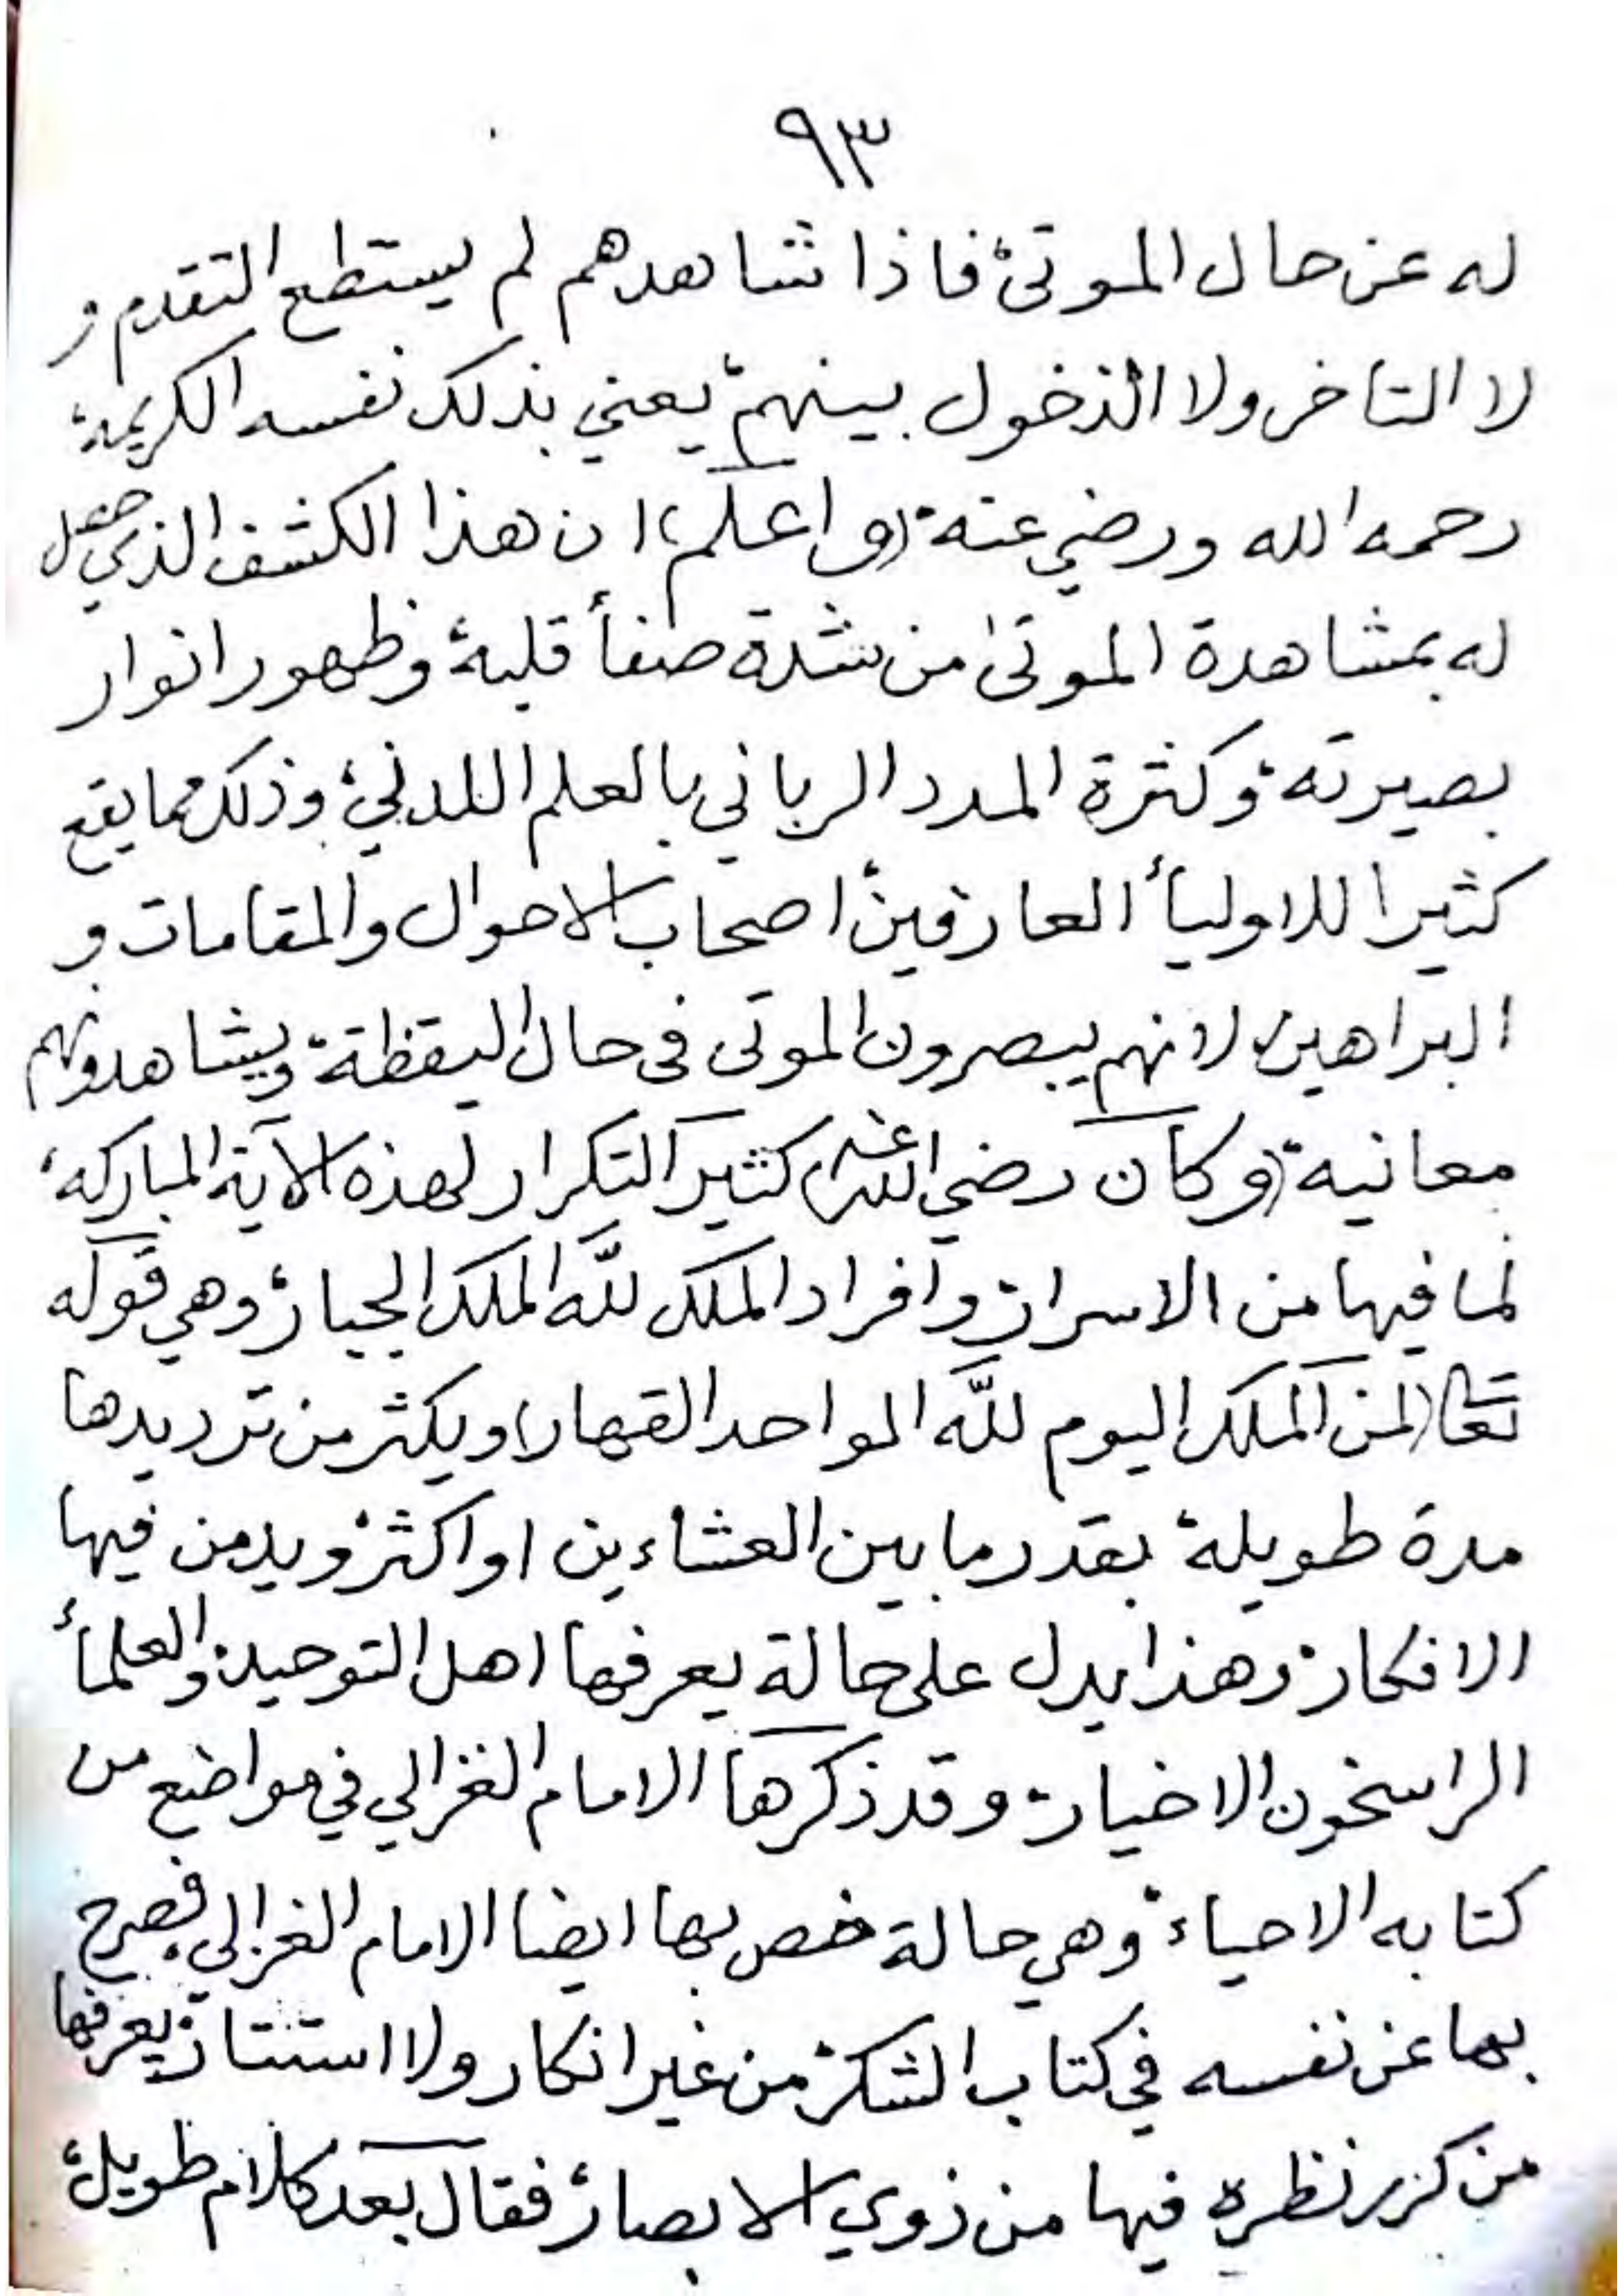 ٩٣
له عن حال الموتىٰ، فاذا شاهدهم لم يستطع التقدم و
لا التاخر ولا الدخول بينهم، يعني بذلك نفسه الكريمة،
رحمه الله ورضي عنه، (واعلم) ان هذا الكشف الذي حصل
له بمشاهدة الموتىٰ من شدة صفأ قلبه، وظهور انوار
بصيرته، وكثرة المدد الرباني بالعلم اللدني، وذلك مما يقع
كثيرا للاوليأ العارفين، اصحاب الاحوال والمقامات و
البراهين، لانهم يبصرون الموتى فى حال اليقظة، ويشاهدونهم
معانية، (وكان رضي الله عنه) كثير التكرار لهذه الآية المباركه،
لما فيها من الاسرار، وافراد الملك للّه الملك الجبار، وهي قوله
تعا (لمن الملك اليوم للّه الواحد القهار) ويكثر من ترديدها
مدة طويلة، بقدر ما بين العشاءين او اكثر، ويدمن فيها
الافكار، وهذا يدل على حالة يعرفها اهل التوحيد، والعلمأ
الراسخون الاخيار، وقد ذكرها الامام الغزالي في مواضع من
كتابه الاحياء، وهي حالة خص بها ايضا الامام الغزالي فصرح
بها عن نفسه في كتاب الشكر، من غير انكار ولا استتار، يعرفها
من كرر نظره فيها من ذوي الابصار، فقال بعد كلام طويل،